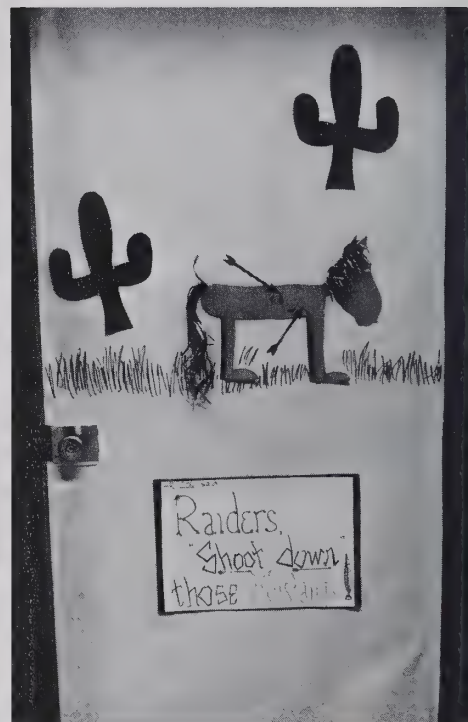 Raiders,
"Shoot down"
those !